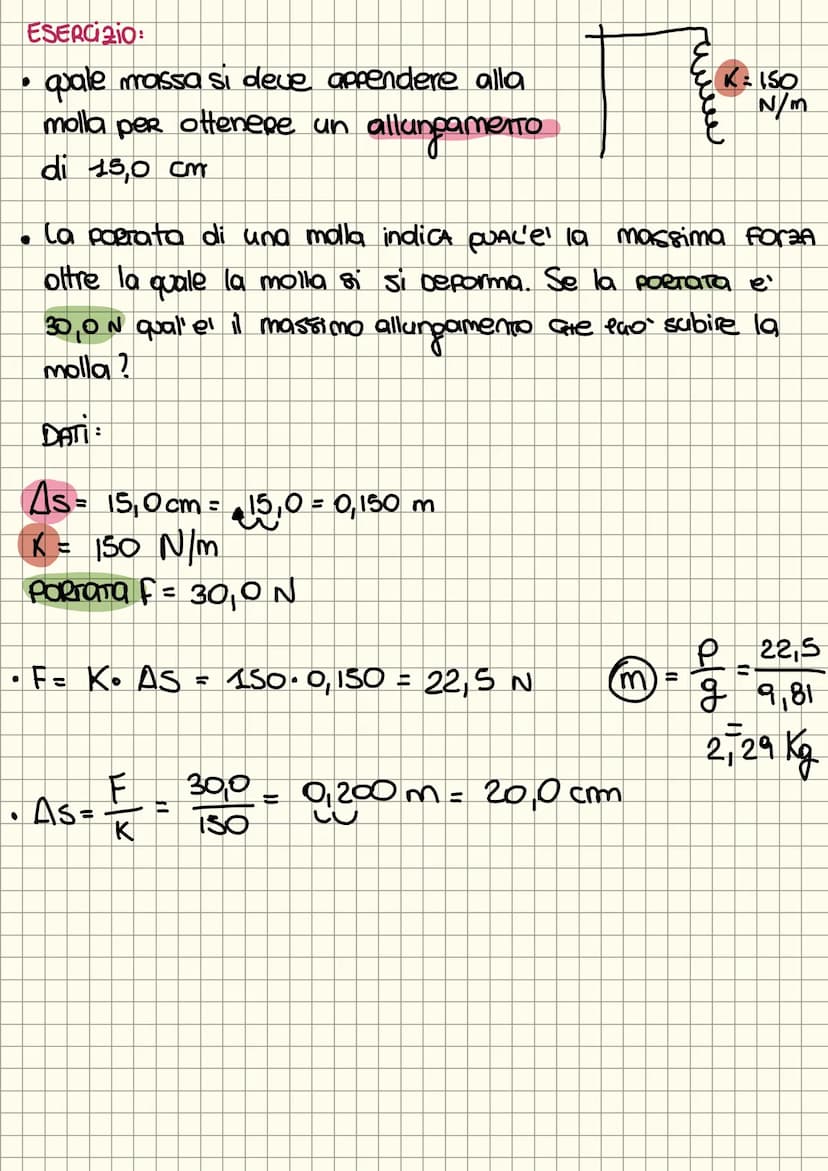 ESERCIZIO:
• quale massa si deve appendere alla
molla per ottenere un allungamento
di 15,0 cm
K= 150
N/m
• La portata di una molla indica qual'e' la massima forza
oltre la quale la molla si si deforma. Se la portata e'
30,0 N qual'e' il massimo allungamento che può subire la
molla?
DATI:
Δs= 15,0 cm = 15,0 = 0,150 m
K = 150 N/m
PORTATA F = 30,0 N
• F= K• ΔS = 150 • 0,150 = 22,5 N
m = P/g = 22,5/9,81
= 2,29 Kg
• ΔS= F/K = 30,0/150 = 0,200 m = 20,0 cm